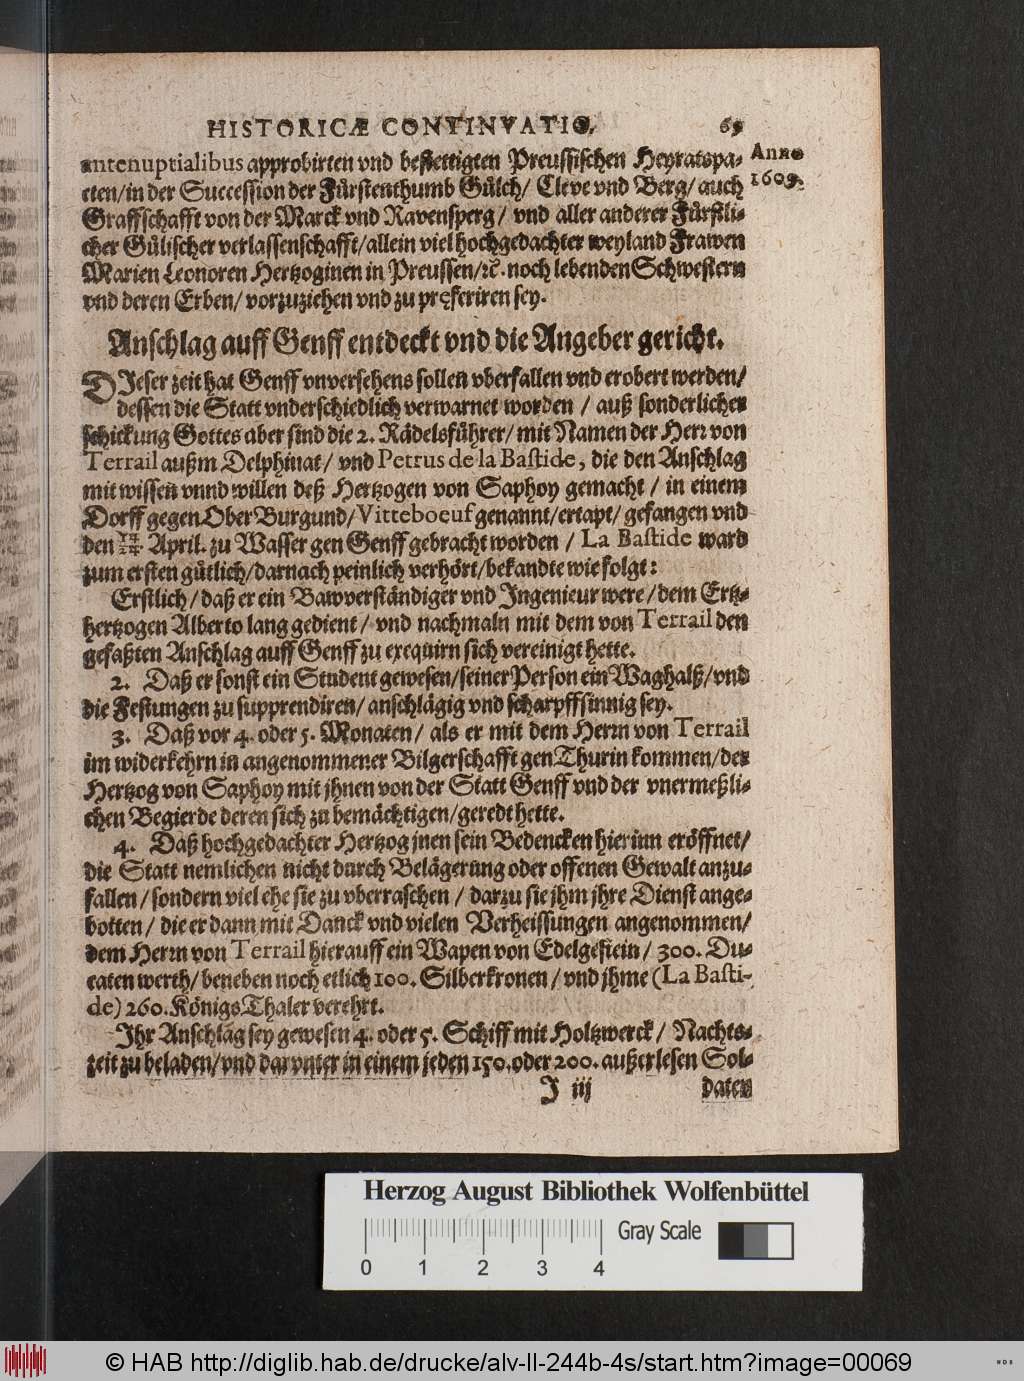 HISTORICÆ CONTINVATIO. 69
antenuptialibus approbirten vnd bestettigten Preussischen Heyratspa-
cten/in der Succession der Fürstenthumb Gülch/ Cleve vnd Berg/ auch
Graffschafft von der Marck vnd Ravensperg/ vnd aller anderer Fürstli-
cher Gülischer verlassenschafft/allein viel hochgedachter weyland Frawen
Marien Leonoren Hertzoginen in Preussen/ꝛc. noch lebenden Schwestern
vnd deren Erben/ vorzuziehen vnd zu pręferiren sey.
Anno
1609.
Anschlag auff Genff entdeckt vnd die Angeber gericht.
DJeser zeit hat Genff vnversehens sollen vberfallen vnd erobert werden/
dessen die Statt vnderschiedlich verwarnet worden / auß sonderlicher
schickung Gottes aber sind die 2. Rädelsführer/ mit Namen der Herr von
Terrail außm Delphinat/ vnd Petrus de la Bastide, die den Anschlag
mit wissen vnnd willen deß Hertzogen von Saphoy gemacht / in einem
Dorff gegen Ober Burgund/ Vitteboeuf genannt/ertapt/ gefangen vnd
den 14/24. April. zu Wasser gen Genff gebracht worden / La Bastide ward
zum ersten gütlich/darnach peinlich verhört/bekandte wie folgt:
Erstlich/ daß er ein Bawverständiger vnd Ingenieur were/dem Ertz-
hertzogen Alberto lang gedient/ vnd nachmaln mit dem von Terrail den
gefaßten Anschlag auff Genff zu exequirn sich vereinigt hette.
2. Daß er sonst ein Student gewesen/seiner Person ein Waghalß/vnd
die Festungen zu supprendiren/ anschlägig vnd scharpffsinnig sey.
3. Daß vor 4. oder 5. Monaten/ als er mit dem Herrn von Terrail
im widerkehrn in angenommener Bilgerschafft gen Thurin kommen/der
Hertzog von Saphoy mit jhnen von der Statt Genff vnd der vnermeßli-
chen Begierde deren sich zu bemächtigen/geredt hette.
4. Daß hochgedachter Hertzog jnen sein Bedencken hierinn eröffnet/
die Statt nemlichen nicht durch Belägerung oder offenen Gewalt anzu-
fallen/sondern viel ehe sie zu vberraschen / darzu sie jhm jhre Dienst ange-
botten/ die er dann mit Danck vnd vielen Verheissungen angenommen/
dem Herrn von Terrail hierauff ein Wapen von Edelgestein/ 300. Du-
caten werth/beneben noch etlich 100. Silberkronen/vnd jhme (La Basti-
de) 260. Königs Thaler verehrt.
Ihr Anschlag sey gewesen 4. oder 5. Schiff mit Holtzwerck/ Nachts-
zeit zu beladen/vnd darunter in einem jeden 150. oder 200. außerlesen Sol-
J iij daten
Herzog August Bibliothek Wolfenbüttel
0 1 2 3 4
Gray Scale
© HAB http://diglib.hab.de/drucke/alv-ll-244b-4s/start.htm?image=00069